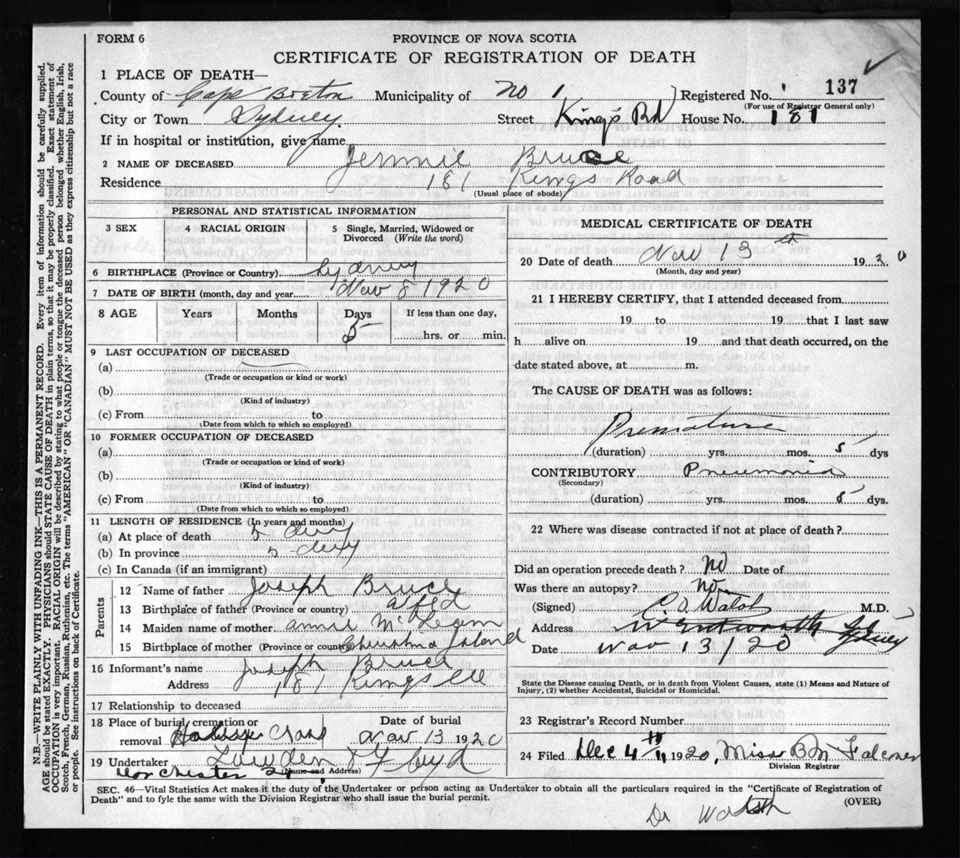 FORM 6
PROVINCE OF NOVA SCOTIA
CERTIFICATE OF REGISTRATION OF DEATH
N.B.—WRITE PLAINLY WITH UNFADING INK—THIS IS A PERMANENT RECORD. Every item of information should be carefully supplied.
AGE should be stated EXACTLY. PHYSICIANS should STATE CAUSE OF DEATH in plain terms, so that it may be properly classified. Exact statement of
OCCUPATION is very important. RACIAL ORIGIN will be described by stating to what people or tongue the deceased person belonged whether English, Irish,
Scotch, French, German, Russian, Ruthenian, etc. The terms "AMERICAN" OR "CANADIAN" MUST NOT BE USED as they express citizenship but not a race
or people. See instructions on back of Certificate.
1 PLACE OF DEATH—
County of Cape Breton Municipality of No 1 Registered No. 137
(For use of Registrar General only)
City or Town Sydney. Street King's Rd House No. 181
If in hospital or institution, give name
2 NAME OF DECEASED Jennie Bruce
Residence 181 Kings Road
(Usual place of abode)
PERSONAL AND STATISTICAL INFORMATION
3 SEX 4 RACIAL ORIGIN 5 Single, Married, Widowed or Divorced (Write the word)
6 BIRTHPLACE (Province or Country) Sydney
7 DATE OF BIRTH (month, day and year) Nov 8 1920
8 AGE Years Months Days If less than one day,
5 hrs. or min.
9 LAST OCCUPATION OF DECEASED
(a)
(Trade or occupation or kind or work)
(b)
(Kind of industry)
(c) From to
(Date from which to which so employed)
10 FORMER OCCUPATION OF DECEASED
(a)
(Trade or occupation or kind of work)
(b)
(Kind of industry)
(c) From to
(Date from which to which so employed)
11 LENGTH OF RESIDENCE (In years and months)
(a) At place of death 5 days
(b) In province 5 days
(c) In Canada (if an immigrant)
Parents
12 Name of father Joseph Bruce
13 Birthplace of father (Province or country) Nfld
14 Maiden name of mother Annie McLean
15 Birthplace of mother (Province or country) Christmas Island
16 Informant's name Joseph Bruce
Address 181 Kings
17 Relationship to deceased
18 Place of burial, cremation or removal Date of burial
Nov 13 1920
19 Undertaker Lowden & Floyd
(Name and Address)
Dorchester St.
MEDICAL CERTIFICATE OF DEATH
20 Date of death Nov 13th 1920
(Month, day and year)
21 I HEREBY CERTIFY, that I attended deceased from
19 to 19 that I last saw
h alive on 19 and that death occurred, on the
date stated above, at m.
The CAUSE OF DEATH was as follows:
Premature
(duration) yrs. mos. 5 dys
CONTRIBUTORY Pneumonia
(Secondary)
(duration) yrs. mos. 5 dys.
22 Where was disease contracted if not at place of death?
Did an operation precede death? No Date of
Was there an autopsy? No
(Signed) Walsh M.D.
Address Wentworth Sydney
Date Nov 13/20
State the Disease causing Death, or in death from Violent Causes, state (1) Means and Nature of
Injury, (2) whether Accidental, Suicidal or Homicidal.
23 Registrar's Record Number
24 Filed Dec 4th 1920, Miss B M Falconer
Division Registrar
SEC. 46—Vital Statistics Act makes it the duty of the Undertaker or person acting as Undertaker to obtain all the particulars required in the "Certificate of Registration of
Death" and to fyle the same with the Division Registrar who shall issue the burial permit. (OVER)
Dr Walsh